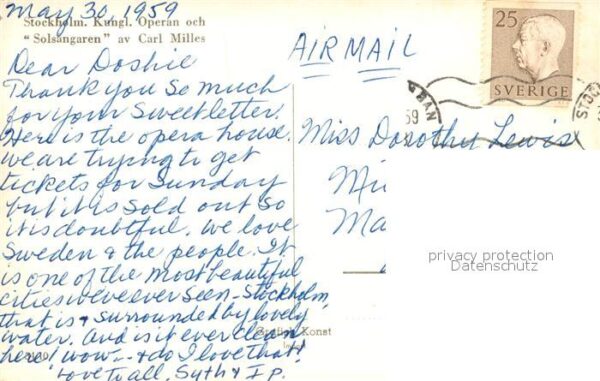 May 30, 1959
Stockholm. Kungl. Operan och
"Solsångaren" av Carl Milles
Dear Doshie
Thank you so much
for your sweet letter.
Here is the opera house.
we are trying to get
tickets for Sunday
but it is sold out so
it is doubtful. We love
Sweden & the people. It
is one of the most beautiful
cities we've ever seen - Stockholm,
that is & surrounded by lovely
water. And is it ever clean
here! wow - & do I love that!
Love to all,
AIR MAIL
25
SVERIGE
BAN
59
STOC
Miss Dorothy Lewis
Mi
Ma
privacy protection
Datenschutz
Grafisk Konst